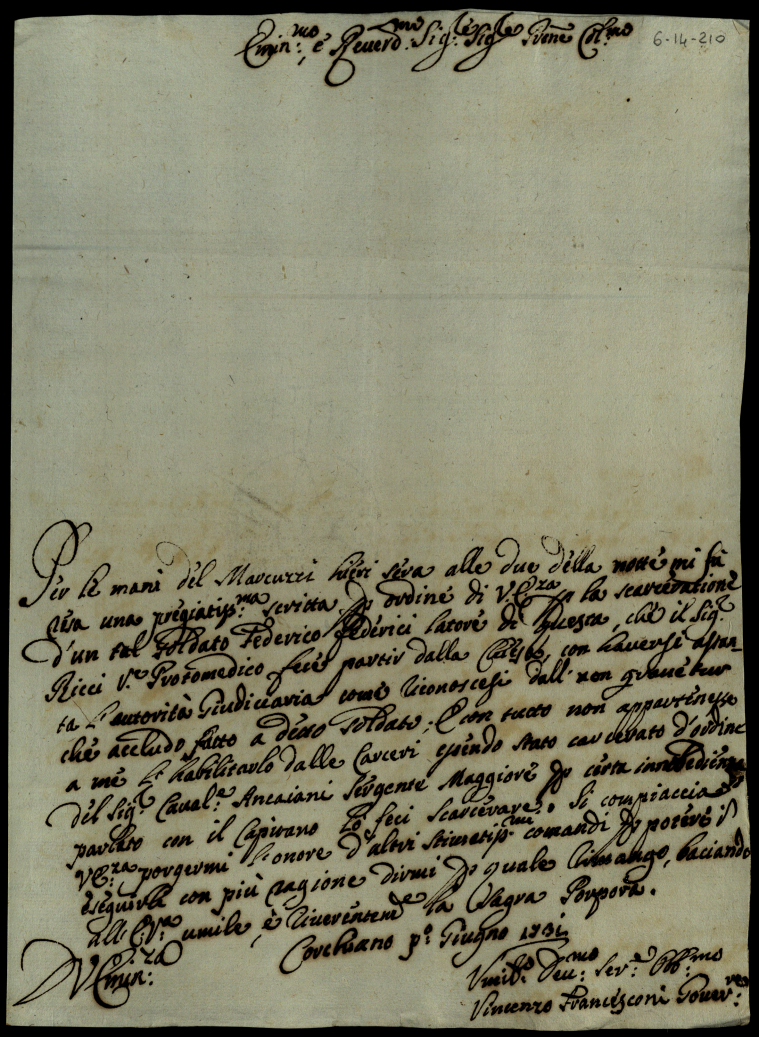 Emin:mo e Reverd:mo Sigle Sigle Prone Col:mo
6-14-210
Per le mani del Marcucci hieri sera alle due della notte mi fù
resa una pregiatissma scritta d'ordine di V:Em:za p la scarceratione
d'un tal soldato Federico Federici latore di questa, che il Sigre
Ricci V:e Protomedico fece partir dalla con haversi assun
ta l'autorità Giudiciaria come riconoscesi dall' non gravetur
che accludo fatto a detto soldato; E con tutto non appartenesse
a me l'habilitarlo dalle Carceri essendo stato carcerato d'ordine
del Sigre Caval:e Ancaiani Sergente Maggiore p certa innobedienza
parlato con il Capitano lo feci scarcerare. Si compiaccia
V:Em:za porgermi l'onore d'altri stimatissmi comandi p potere
eseguirli con più ragione dirmi p quale rimango, baciando
all' E:V:a umile, e riverenteme la Sagra Porpora.
V:Emin:za
Corchiano po: Giugno 1731
Umilo: Dev:mo Ser:e Obb:mo
Vincenzo Francesconi Gover:re